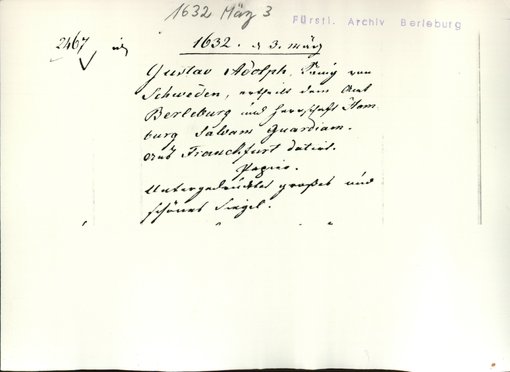 1632 März 3
Fürstl. Archiv Berleburg
2467
1632. d 3. märz
Gustav Adolph, König von
Schweden, ertheilt dem Amt
Berleburg und Herrschaft Ham
burg Salvam Guardiam.
Aus Franckfurt datirt.
Papier.
Untergedrücktes großes und
schönes Siegel.